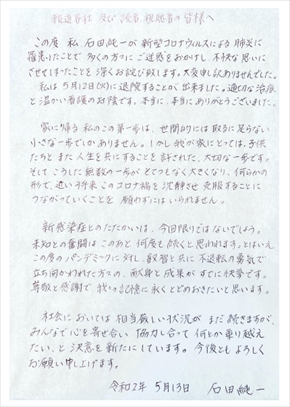 報道各社 及び 読者、視聴者の皆様へ
この度 私、石田純一が新型コロナウィルスによる肺炎に
罹患したことで 多くの方々にご迷惑をおかけし、不快な思いに
させてしまったことを深くお詫び致します。大変申し訳ありませんでした。
私は 5月12日(火)に退院することが出来ました。適切な治療
と温かい看護のお陰です。本当に、本当にありがとうございました。
家に帰る 私のこの第一歩は、世間的には取るに足らない
小さな一歩でしかありません。しかし我が家にとっては、子供
たちと また人生を共にすることを許された、大切な一歩です。
そして こうした無数の一歩が とてつもなく大きくなり、何らかの
形で、遠い将来 このコロナ禍を沈静させ、克服することに
つながっていくことを 願わずにはいられません。
新感染症とのたたかいは、今回限りではないでしょう。
未知との奮闘は このあと 何度も続くと思われます。とはいえ
この度のパンデミックに対し、叡智と共に不退転の勇気で
立ち向かわれた方々の、献身と成果がすでに快挙です。
尊敬と感謝で、我々の記憶に永くとどめおきたいと思います。
社会においては 相当厳しい状況が まだ続きますが、
みんなで心を寄せ合い 協力し合って 何とか乗り越え
たい、と 決意を新たにしています。今後ともよろしく
お願い申し上げます。
令和2年 5月13日 石田純一